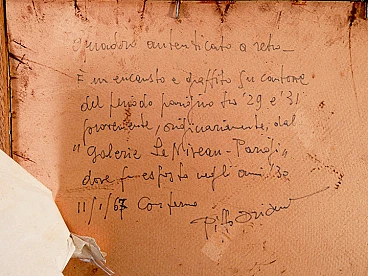 Quadro autenticato a retro_
È un encausto e graffito su cartone
del periodo parigino tra '29 e '31
proveniente, originariamente, dal
"Galerie Le Niveau - Parigi"
dove fu esposto negli anni '30
11/1/67 Confermo
Pippo Oriani